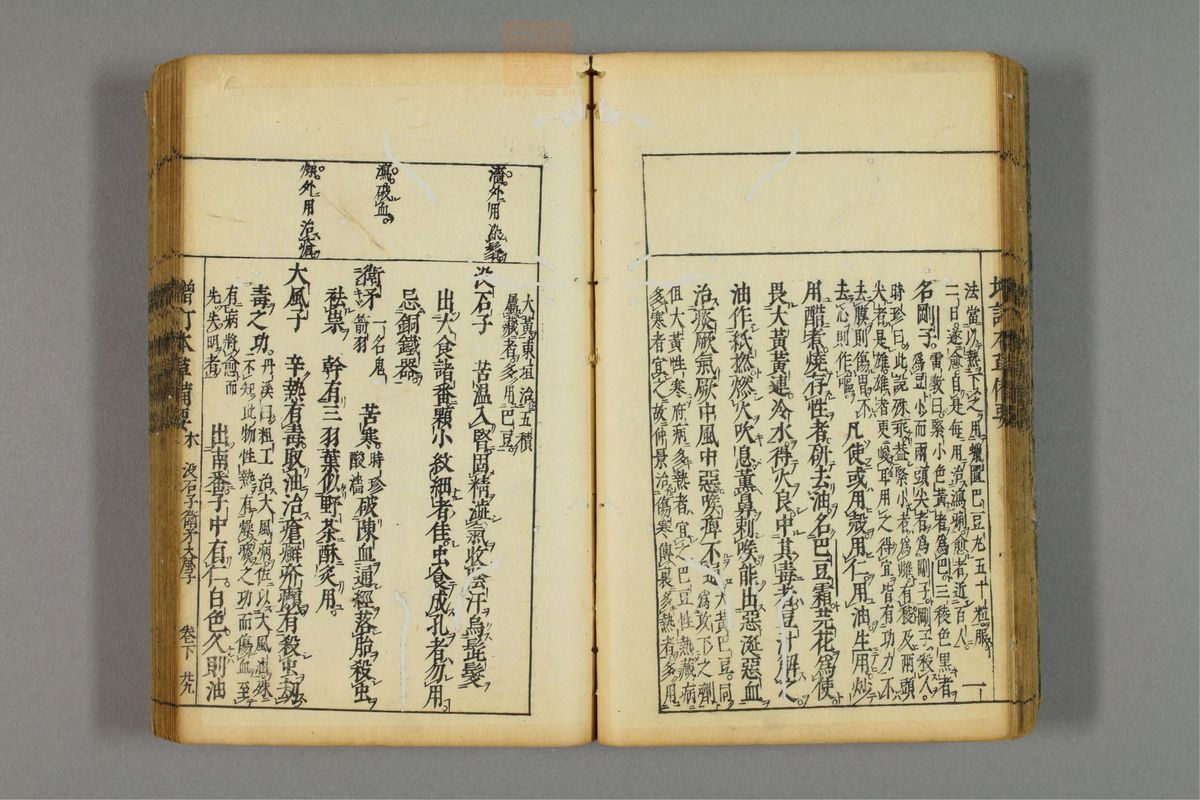 法當以熱下之用蠟匱巴豆丸五十粒服
二日遂愈自是每用治瀉痢愈者近百人
名剛子雷斅曰緊小色黃者為巴三稜色黑者
為豆小而兩頭尖者為剛子剛子殺人
時珍曰此說殊乖蓋緊小者為雌有稜及兩頭
尖者是雄雄者更峻耳用之得宜皆有功力不
去膜則傷胃不
去心則作嘔
凡使或用殼用仁用油生用炒
用醋煮燒存性者研去油名巴豆霜芫花為使
畏大黃黃連冷水得火良中其毒者豆汁解之
油作紙撚燃火吹息薰鼻刺喉能出惡涎惡血
治痰厥氣厥中風中惡喉痺不通
大黃巴豆同
為攻下之劑
但大黃性寒府病多熱者宜之巴豆性熱藏病
多寒者宜之故仲景治傷寒傳裏多熱者多用
大黃東垣治五積
屬藏者多用巴豆
濇外用染髭
沒石子
苦溫入腎固精濇氣收陰汗烏髭髮
出大食諸番顆小紋細者佳虫食成孔者勿用
忌銅鐵器
瀉破血
衛矛
一名鬼
箭羽
苦寒
時珍
酸濇
破陳血通經落胎殺虫
祛祟
幹有三羽葉似野茶酥炙用
燥外用治瘡
大風子
辛熱有毒取油治瘡癬疥癩有殺虫劫
毒之功
丹溪曰粗工治大風病佐以大風油殊
不知此物性熱有燥痰之功而傷血至
有病將愈而
先失明者
出南番子中有仁白色久則油
增訂本草備要
木
沒石子衛矛大風子
卷下